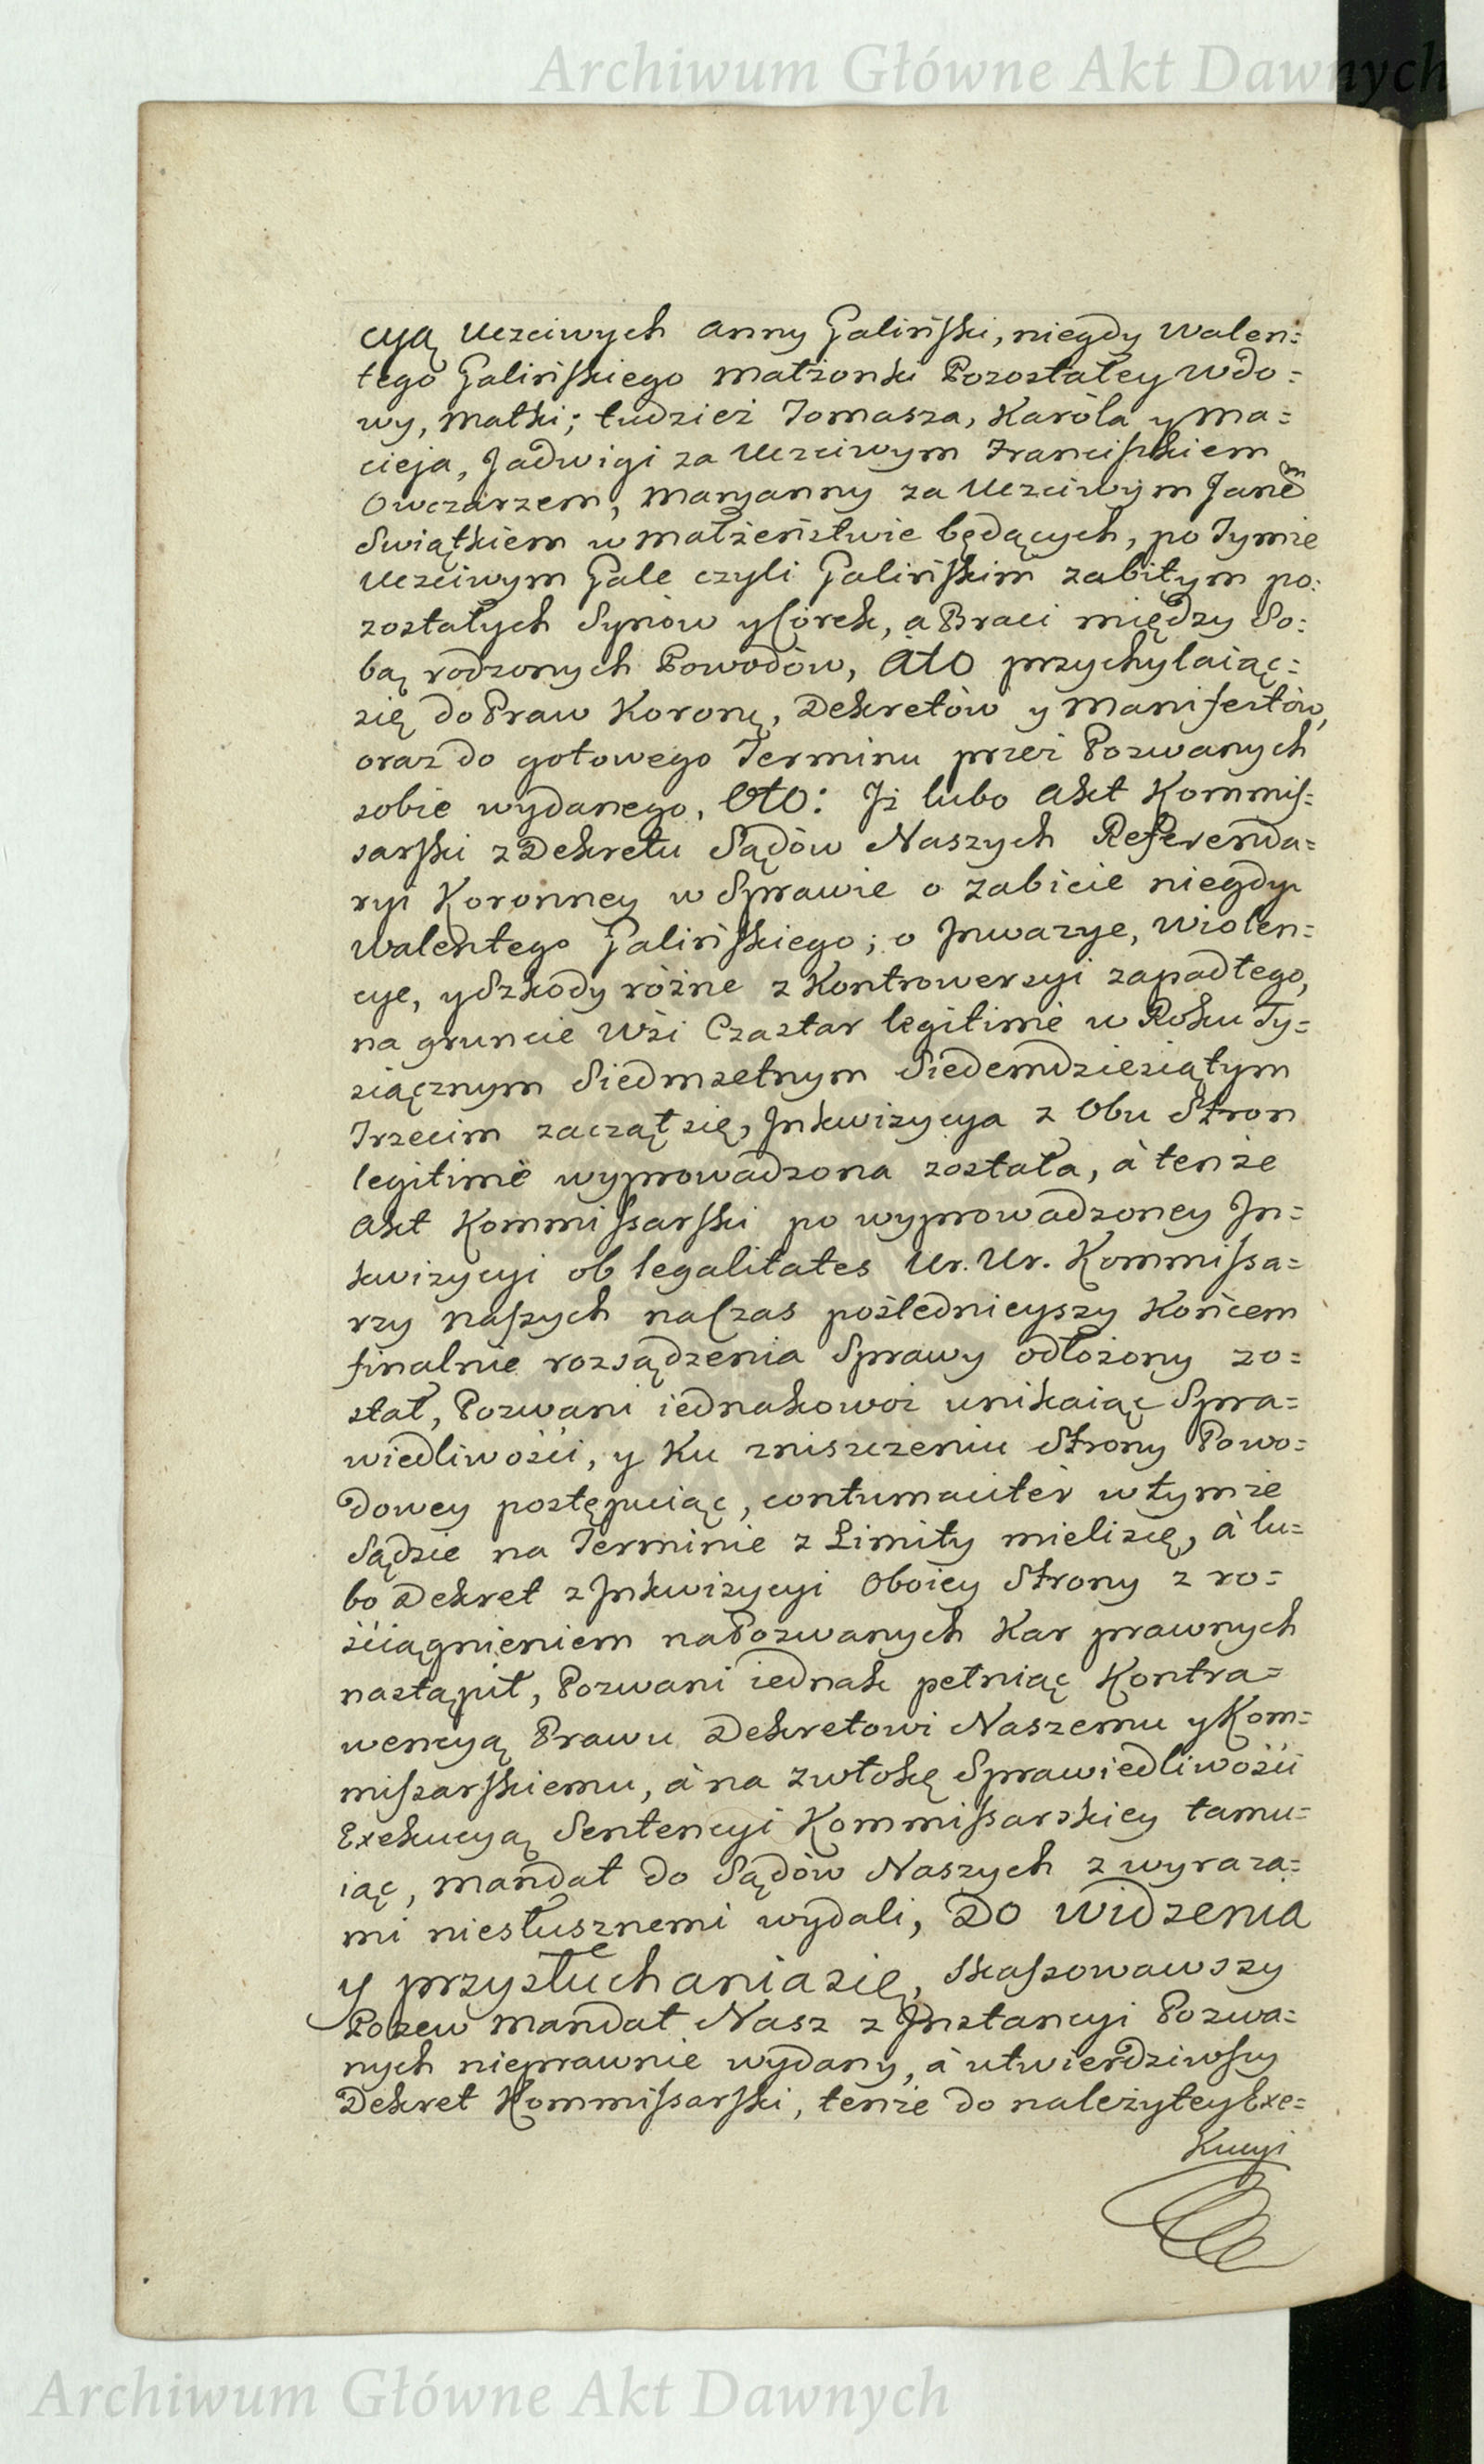 Archiwum Główne Akt Dawnych
cyą Uczciwych Anny Galińſki, niegdy Walen=
tego Galińſkiego Małżonki Pozostałey Wdo=
wy, Matki; tudzież Tomasza, Karóla y Ma=
cieja, Jadwigi za Uczciwym Franciſzkiem
Owczarzem, Maryanny za Uczciwym Janem
Swiątkiem w Małżeństwie będących, po Tymże
Uczciwym Gale czyli Galińſkim zabitym po=
zostałych Synów y Córek, a Braci między So=
bą rodzonych Powodów, Ato przychylaiąc=
się do Praw Koronę, Dekretów y Manifestów,
oraz do gotowego Terminu przez Pozwanych
sobie wydanego, Oto: Iż lubo Akt Kommiſ=
sarſki z Dekretu Sądów Naszych Referenda=
ryi Koronney w Sprawie o zabicie niegdyi
Walentego Galińſkiego; o Inwazye, Wiolen=
cye, y Szkody różne z Kontrowersyi zapadłego,
na gruncie Wśi Czastar legitimè w Roku Ty=
siącznym Siedmsetnym Siedemdziesiątym
Trzecim zaczął się, Inkwizycya z Obu Stron
legitimè wyprowadzona została, à tenże
Akt Kommiſsarſki po wyprowadzoney In=
kwizycyi ob legalitates Ur. Ur. Kommiſsa=
rzy naſzych na Czas poślednieyszy Końcem
finalnie rozsądzenia Sprawy odłożony zo=
stał, Pozwani iednakowoż unikaiąc Spra=
wiedliwości, y Ku zniszczeniu Strony Powo=
dowey postępuiąc, contumaciter w tymże
Sądzie na Terminie z Limity mieli się, à lu=
bo Dekret z Inkwizycyi Oboiey Strony z ro=
ściągnieniem na Pozwanych Kar prawnych
nastąpił, Pozwani iednak pełniąc Kontra=
wencyą Prawu Dekretowi Naszemu y Kom=
miſsarſkiemu, à na zwłokę Sprawiedliwości
Exekucyą Sentencyi Kommiſsarskiey tamu=
iąc, Mandat do Sądów Naszych z wyraza=
mi niesłusznemi wydali, Do Widzenia
y przysłuchania się, Skaſsowawszy
Pozew Mandat Nasz z Instancyi Pozwa=
nych nieprawnie wydany, à utwierdziwſzy
Dekret Kommiſsarſki, tenże do należytey Exe=
Kucyi
Archiwum Główne Akt Dawnych